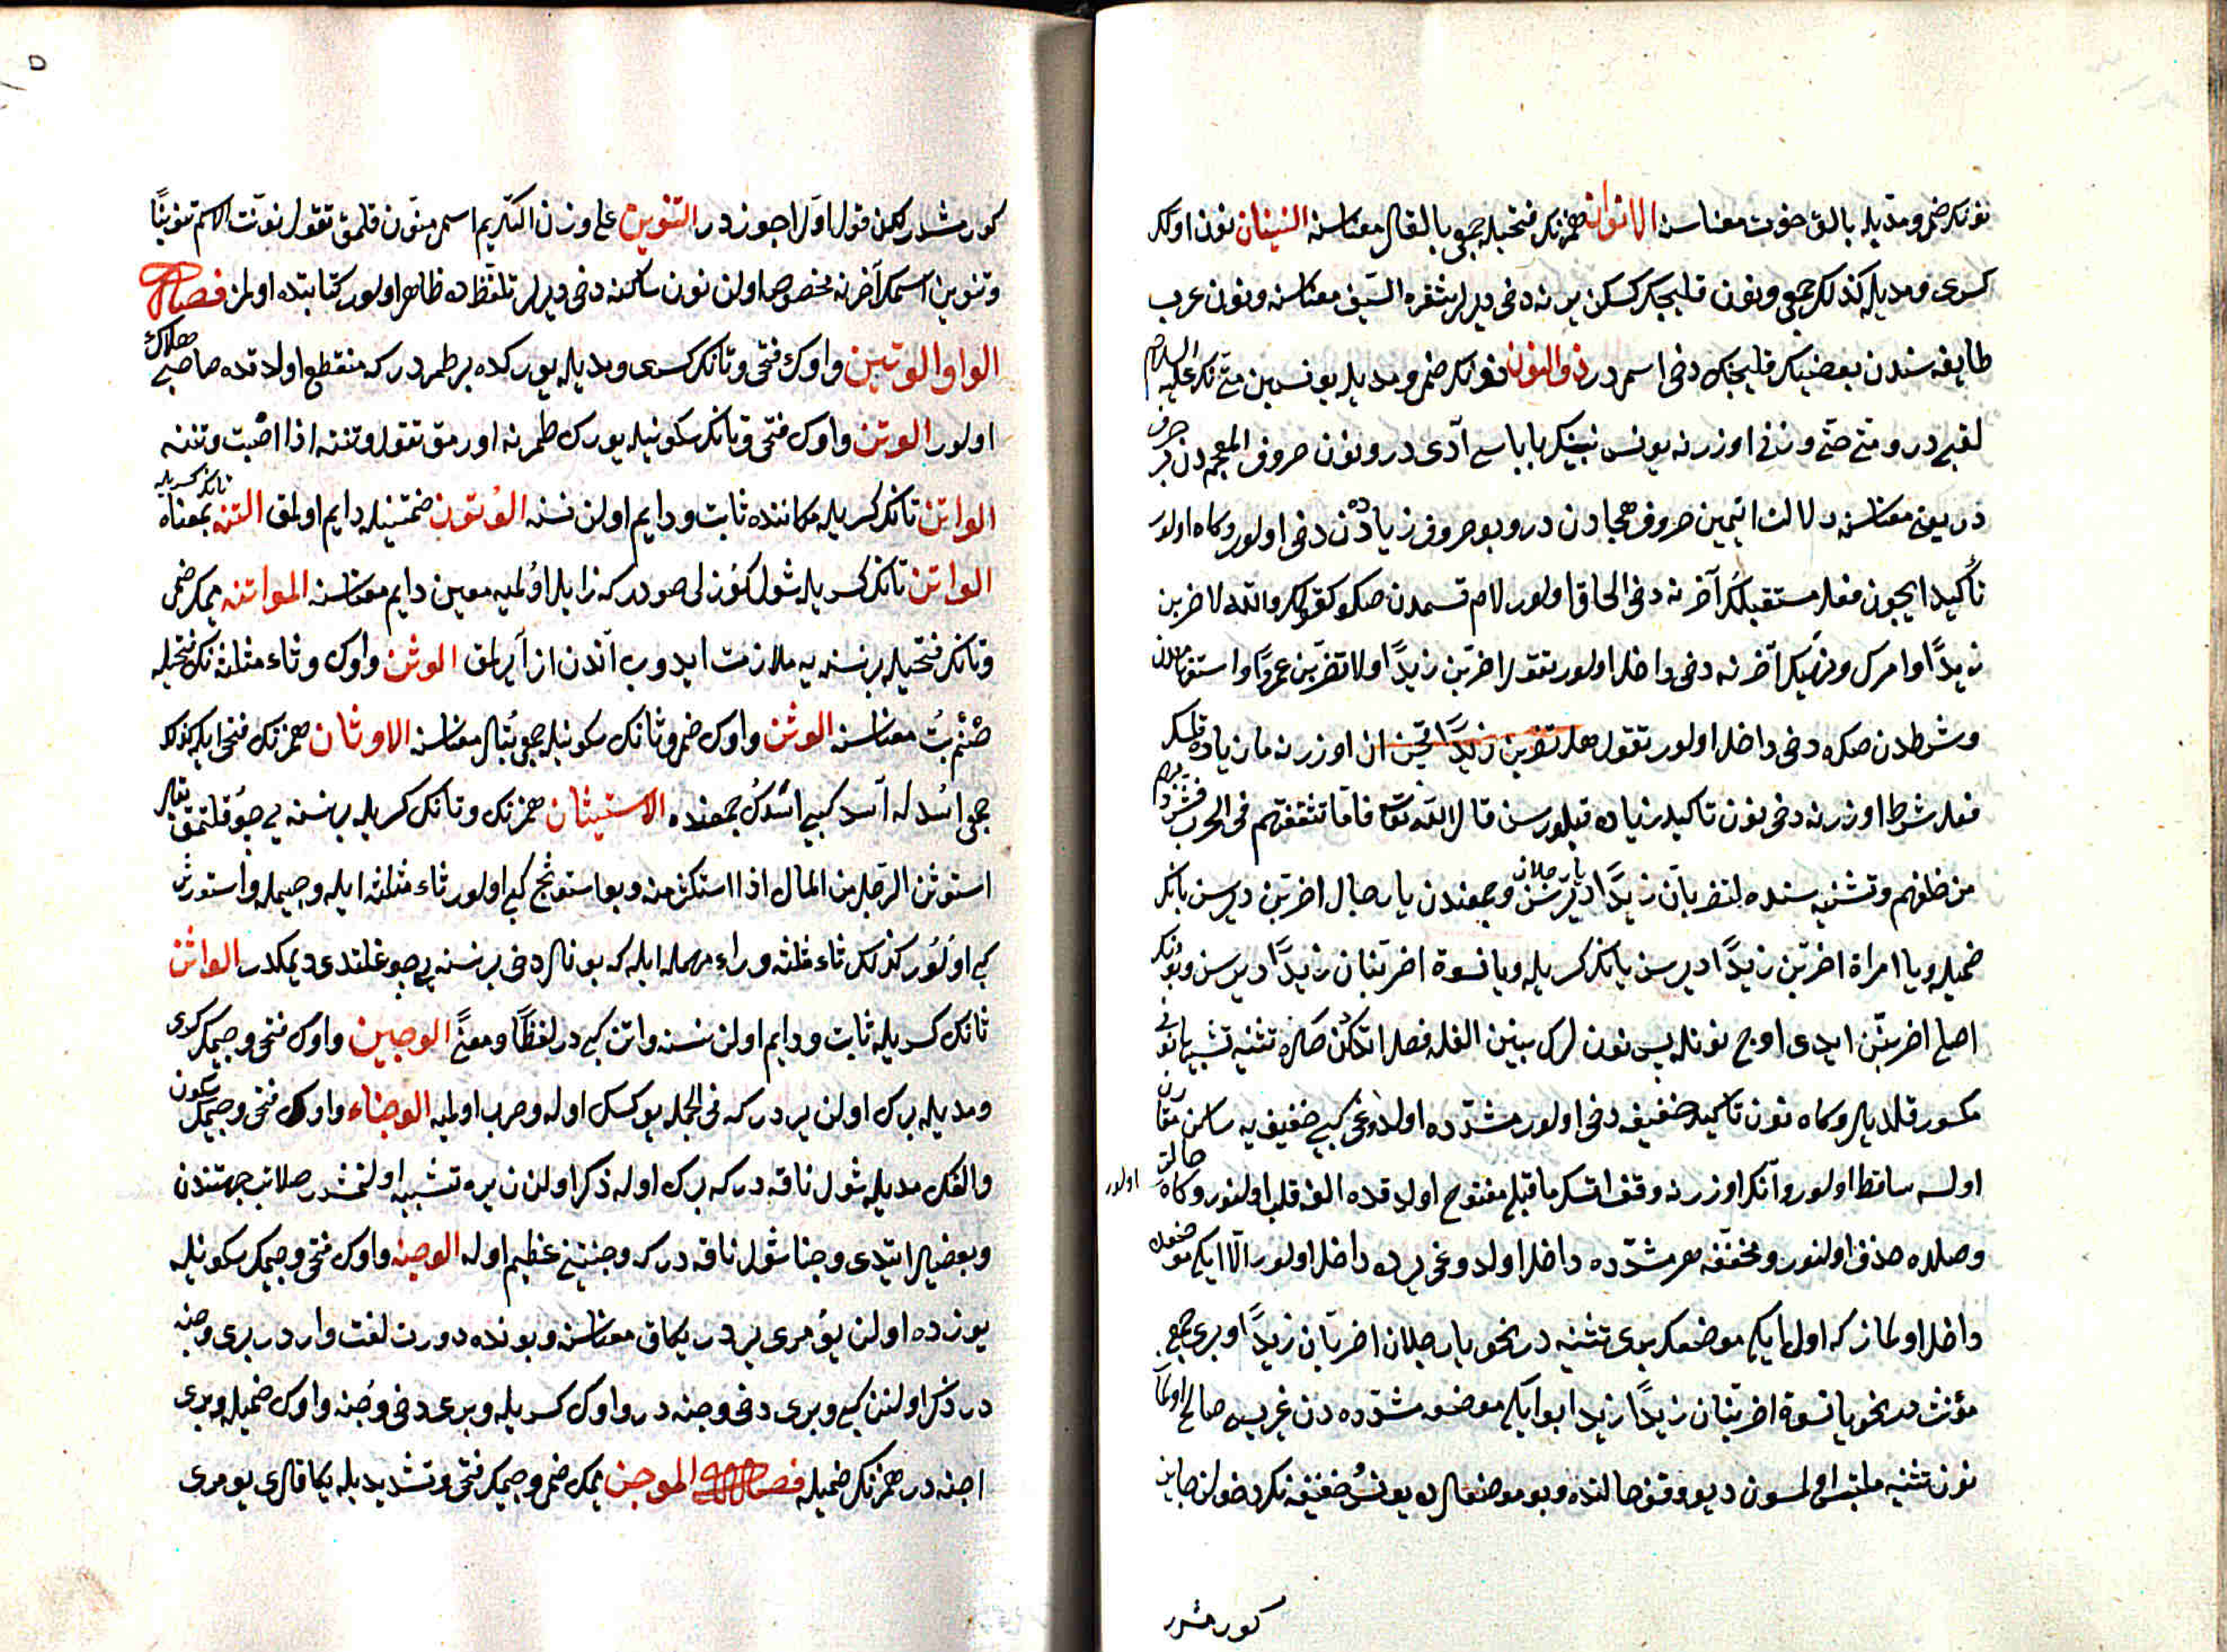 نونك ضمى و مديله بالق حوت معناسنه الانوان همزنك فتحيله جمعى بالقلر معناسنه النينان نونن اولكى
كسرى و مديله كذلك جمعى و نون قليجك كسكن يرينه دخى ديرلر شفرة السيف معناسنه و نون عرب
طايفه سندن بعضينك قليجنك دخى اسمى در ذو النون نونك ضمى و مديله يونس بن متى نك عليه السلام
لقبى در و متى حتى وزنى اوزرنه يونس نبينك باباسى آدى در و نون حروف المعجم دن بر حرف
در يعنى معناسنه دلالت ايتمين حروف هجادن در و بو حروف زياده دن دخى اولور و كاه اولور
تأكيد ايچون فعل مستقبلك آخرنه دخى الحاق اولور لام قسمدن صكره كقولك والله لاضربن
زيدًا و امرك و نهيك آخرنه دخى داخل اولور تقول اضربن زيدًا و لا تضربن عمروًا و استفهامدن
و شرطدن صكره دخى داخل اولور تقول هل تضربن زيدًا ان اوزرنه ما زياده قلسك
فعل شرط اوزرنه دخى نون تاكيد زياده قيلورسن قال الله تعالى فاما تثقفنهم فى الحرب فشرد بهم
من خلفهم و تثنيه سنده لتضربان زيدًا يا رجلان ديرسن و جمعندن يا رجال اضربن ديرسن بانك
ضميله و يا امراة اضربن زيدًا ديرسن بانك كسريله و يا نسوة اضربنان زيدًا ديرسن و بونك
اصلى اضربنن ايدى اوچ نونله پس نون لرك بينين الفله فصل اتدكدن صكره تثنيه تشبيها نونى
مكسور قلديلر و كاه نون تاكيد خفيفه دخى اولور مشدده اولدوغى كبى خفيفه يه ساكن مقارن
اولسه ساقط اولور و آنك اوزرنه وقف اتسك ماقبلى مفتوح اولدقده الف قلب اولنور و كاه حالت اولور
وصلده حذف اولنور و مخففه هر مشدده داخل اولدوغى يرده داخل اولور الا ايكى موضعده
داخل اولماز كه اول ايكى موضعك برى تثنيه در نحو يا رجلان اضربان زيدًا و برى جمع
مؤنث در نحو يا نسوة اضربنان زيدًا زيرا بو ايكى موضع مشدده دن غيريه صالح اولماز
نون تثنيه ملتبس اولمسون ديو وقف حالنده و بو موضعلرده يونس خفيفه نك دخولن جايز
كورمشدر
كورمشدر لكن قول اول اجود در التنوين على وزن التكريم اسمى منون قلمق تقول نونت الاسم تنوينًا
و تنوين اسمك آخرنه مخصوص اولن نون ساكنه دخى ديرلر تلفظده ظاهر اولور كتابتده اولمز فصل
الواو الوتين واوك فتحى و تانك كسرى و مديله يوركده بر طمردر كه منقطع اولدقده صاحبى هلاك
اولور الوتن واوك فتحى و تانك سكونيله يورك طمرنه اورمق تقول وتنته اذا اصبت وتينه
الواتن تانك كسريله مكاننده ثابت و دايم اولن نسنه الوتون ضمتينله دايم اولمق التنه تانك كسريله بمعناه
الواتن تانك كسريله شول كوزلى صودر كه زايل اولميه معين دايم معناسنه المواتنه ميمك ضمى
و تانك فتحيله بر نسنه يه ملازمت ايدوب آندن از آيرلمق الوثن واوك و ثاء مثلثه نك فتحيله
صنم بت معناسنه الوثن واوك ضمى و ثانك سكونيله جمعى بتلر معناسنه الاوثان همزنك فتحى ايله كذلك
جمعى اسد له آسد كبى اسدك جمعنده الاستيثان همزنك و تانك كسريله بر نسنه يى چوقلتمق يقال
استوثن الرجل من المال اذا استكثر منه و بو استوثج كبى اولور ثاء مثلثه ايله و جيمله و استوثر
كبى اولور كذلك ثاء مثلثه و راء مهمله ايله كه بونلر دخى بر نسنه يى چوغلتدى ديمكدر الواثن
ثانك كسريله ثابت و دايم اولن نسنه واتن كبى در لفظًا و معنًى الوجين واوك فتحى و جيمك كسرى
و مديله برك اولن يردر كه فى الجمله يوكسك اوله و حرب اولميه الوجناء واوك فتحى و جيمك سكون
و الفك مديله شول ناقه در كه برك اوله ذكر اولنن يره تشبيه اولنمشدر صلابت جهتندن
و بعضيلر ايتدى وجنا شول ناقه در كه وجنتينى عظيم اوله الوجنه واوك فتحى و جيمك سكونيله
يوزده اولن يومرى يردر يكاق معناسنه و بونده دورت لغت واردر برى وجنه
در ذكر اولنن كبى و برى دخى وجنه در واوك كسريله و برى دخى وجنه واوك ضميله و برى
اجنه در همزنك ضميله فصل الموجن ميمك ضمى و جيمك فتحى و تشديديله يكاقلرى يومرى